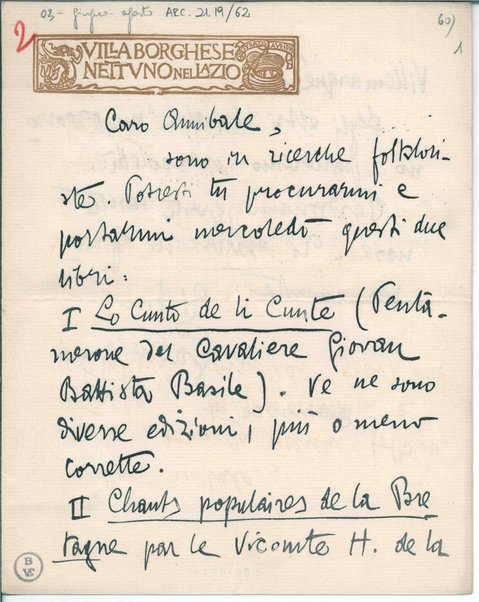 03 - giugno - agosto ARC. 21.19/62
60)
2
1
VILLA BORGHESE
NETTUNO NEL LAZIO
Caro Annibale,
sono in ricerche folklori-
ste. Potresti tu procurarmi e
portarmi mercoledì questi due
libri:
I Lo Cunto de li Cunte (Penta-
merone del Cavaliere Giovan
Battista Basile). Ve ne sono
diverse edizioni, più o meno
corrette.
II Chants populaires de la Bre
tagne par le Vicomte H. de la
B
VE